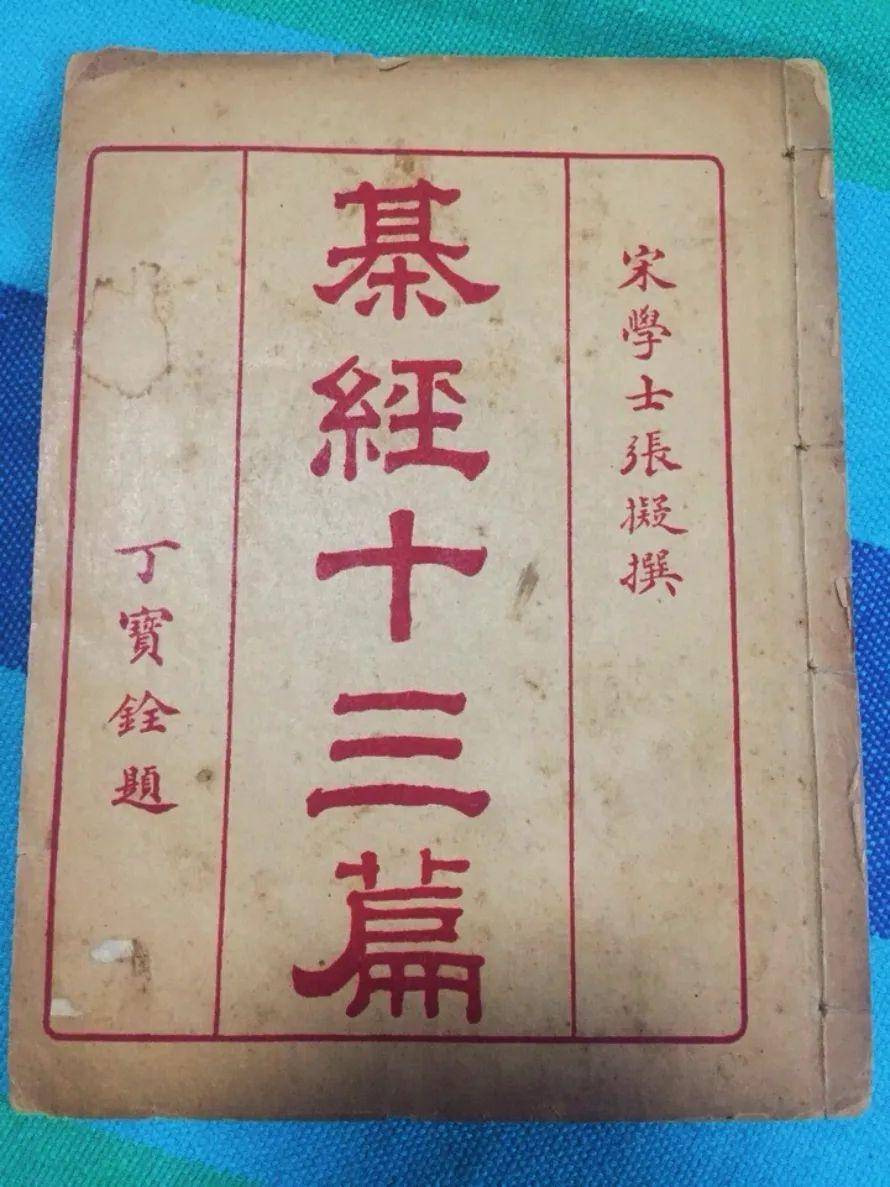 宋學士張擬撰
棊經十三篇
丁寶銓題